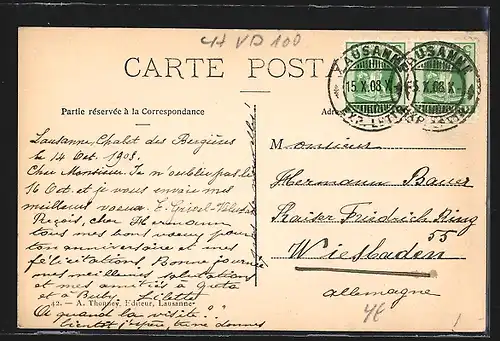 CH VD 100
CARTE POST
LAUSANNE
15.X.08.X
EXP. LETTR.
LAUSANNE
15.X.08.X
EXP. LETTR.
Partie réservée à la Correspondance
Adre
Lausanne, Chalet des Bergières
le 14 Oct. 1908.
Cher Monsieur. Je n'oublie pas le
16 Oct. et je vous envoie mes
meilleurs voeux.
Reçois, cher Hermann
tous mes bons voeux pour
ton anniversaire et mes
félicitations. Bonne journée
mes meilleures salutations
et mes amitiés à Greta
et à Buby.
42. — A. Thonney, Editeur, Lausanne
A quand la visite?
bientôt j'espère,
Monsieur
Hermann Bauer
Kaiser Friedrich Ring
55
Wiesbaden
Allemagne